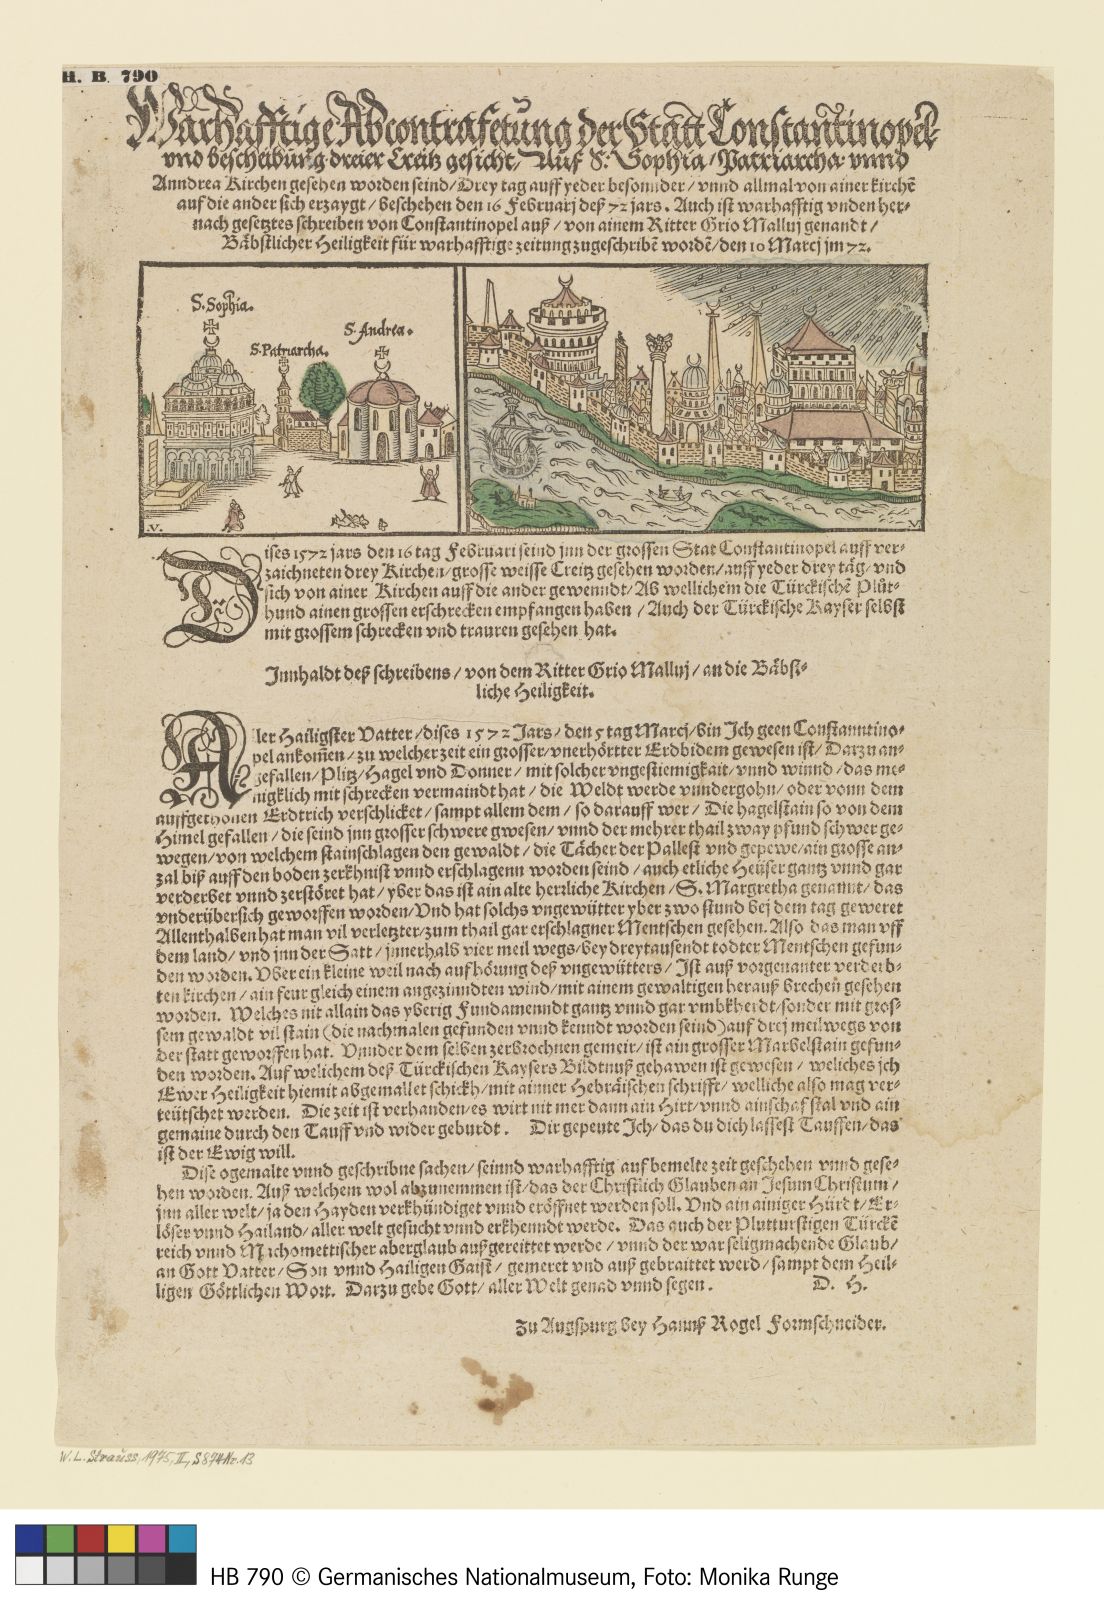 H. B. 790
Warhafftige Abcontrafetung der Statt Constantinopel
vnd bescheibung dreier Creitz gesicht/ Auf S: Sophia/ Patriarcha vnnd
Anndrea Kirchen gesehen worden seind/ Drey tag auff yeder besonnder/ vnnd allmal von ainer kirchē
auf die ander sich erzaygt/ beschehen den 16 Februarj deß 72 jars. Auch ist warhafftig vnden her-
nach gesetztes schreiben von Constantinopel auß/ von ainem Ritter Grio Malluj genandt/
Bäbstlicher Heiligkeit für warhafftige zeitung zugeschribē wordē/ den 10 Marcj jm 72.
S. Sophia.
S. Patriarcha.
S. Andrea.
.V.
V.
Dises 1572 jars den 16 tag Februari seind jnn der grossen Stat Constantinopel auff ver-
zaichneten drey Kirchen/ grosse weisse Creitz gesehen worden/ auff yeder drey täg/ vnd
sich von ainer Kirchen auff die ander gewenndt/ Ab wellichem die Türckischē Plůt-
hund ainen grossen erschrecken empfangen haben/ Auch der Türckische Kayser selbst
mit grossem schrecken vnd trauren gesehen hat.
Innhaldt deß schreibens/ von dem Ritter Grio Malluj/ an die Bäbst-
liche Heiligkeit.
Aller Hailigster Vatter/ dises 1572 Jars/ den 5 tag Marcj/ bin Ich geen Constanntino-
pel ankom̄en/ zu welcher zeit ein grosser/ vnerhörtter Erdbidem gewesen ist/ Darzu an-
gefallen/ Plitz/ Hagel vnd Donner/ mit solcher vngestiemigkait/ vnnd winnd/ das me-
nigklich mit schrecken vermaindt hat/ die Weldt werde vnndergohn/ oder vonn dem
auffgethonen Erdtrich verschlicket/ sampt allem dem/ so darauff wer/ Die hagelstain so von dem
Himel gefallen/ die seind jnn grosser schwere gwesen/ vnnd der mehrer thail zway pfund schwer ge-
wegen/ von welchem stainschlagen den gewaldt/ die Tächer der Pallest vnd gepewe/ ain grosse an-
zal biß auff den boden zerkhnist vnnd erschlagenn worden seind/ auch etliche Heüser gantz vnnd gar
verderbet vnnd zerstöret hat/ yber das ist ain alte herrliche Kirchen/ S. Margretha genannt/ das
vnderübersich geworffen worden/ Vnd hat solchs vngewütter yber zwo stund bej dem tag geweret
Allenthalben hat man vil verletzter/ zum thail gar erschlagner Mentschen gesehen. Also das man vff
dem land/ vnd jnn der Satt/ jnnerhalb vier meil wegs/ bey dreytausendt todter Mentschen gefun-
den worden. Vber ein kleine weil nach aufhörung deß vngewütters/ Ist auß vorgenanter verderb-
ten kirchen/ ain feur gleich einem angezinndten wind/ mit ainem gewaltigen herauß brechen gesehen
worden. Welches nit allain das yberig Fundamenndt gantz vnnd gar vmbkherdt/ sonder mit gros-
sem gewaldt vil stain (die nachmalen gefunden vnnd kenndt worden seind) auf drej meil wegs von
der statt geworffen hat. Vnnder dem selben zerbrochnen gemeir/ ist ain grosser Marbelstain gefun-
den worden. Auf welichem deß Türckischen Kaysers Bildtnuß gehawen ist gewesen/ weliches jch
Ewer Heiligkeit hiemit abgemallet schickh/ mit ainner Hebräischen schrifft/ welliche also mag ver-
teütschet werden. Die zeit ist verhanden/ es wirt nit mer dann ain Hirt/ vnnd ain schafstal vnd ain
gemaine durch den Tauff vnd wider geburdt. Dir gepeute Ich/ das du dich lassest Tauffen/ das
ist der Ewig will.
Dise ogemalte vnnd geschribne sachen/ seinnd warhafftig auf bemelte zeit geschehen vnnd gese-
hen worden. Auß welchem wol abzunemmen ist/ das der Christlich Glauben an Jesum Christum/
jnn aller welt/ ja den Hayden verkhündiget vnnd eröffnet werden soll. Vnd ain ainiger Hürdt/ Er-
löser vnnd Hailand/ aller welt gesucht vnnd erkhenndt werde. Das auch der Plutturstigen Türckē
reich vnnd Machomettischer aberglaub außgereittet werde/ vnnd der war seligmachende Glaub/
an Gott Vatter/ Son vnnd Hailigen Gaist/ gemeret vnd auß gebraittet werd/ sampt dem Heil-
ligen Göttlichen Wort. Darzu gebe Gott/ aller Welt genad vnnd segen. D. H.
Zu Augspurg bey Hannß Rogel Formschneider.
W. L. Strauss, 1975, II, S 874 Nr. 13
HB 790 © Germanisches Nationalmuseum, Foto: Monika Runge